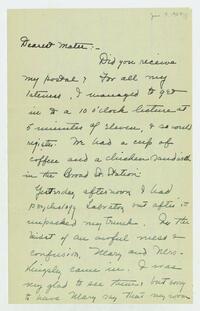 Dearest Mater:-
Did you receive
my postal? For all my
lateness, I managed to get
in to a 10 o'clock lecture at
5 minutes of eleven, & so could
register. We had a cup of
coffee and a chicken sandwich
in the Broad St. Station.
Yesterday afternoon I had
psychology Laboratory but after it
unpacked my trunk. In the
midst of an awful mess &
confusion, Mary and Mrs.
Kingsley came in. I was
very glad to see them, but sorry
to have Mary say that my room